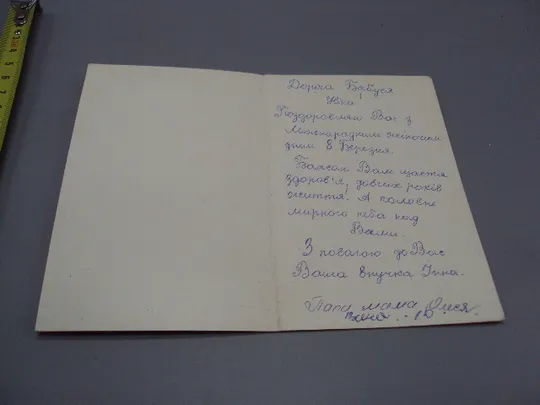 Дорога Бабуся
Ніна!
Поздоровляю Вас з
Міжнародним жіночим
днем 8 Березня.
Бажаю Вам щастя
здоров'я, довгих років
життя. А головне
мирного неба над
Вами.
З повагою до Вас
Ваша внучка Інна.
Папа мама Олеся.